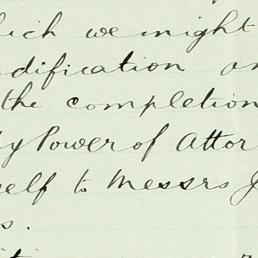 hich we might
dification on
the completion
by Power of Attor
self to Messrs J
s.